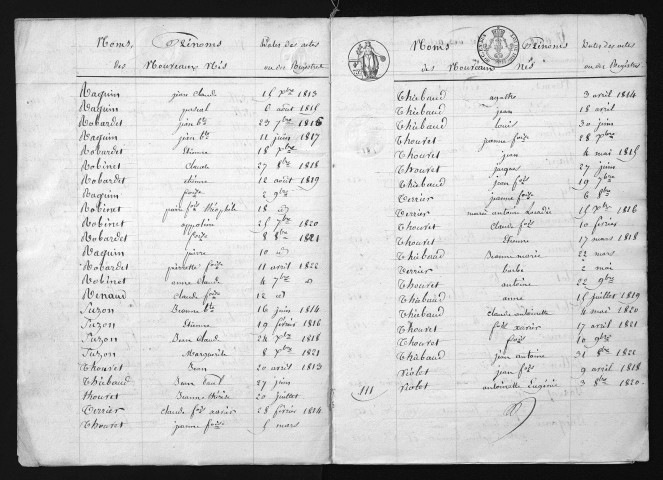 Noms, Prénoms Dates des actes
des Nouveaux Nés ou des Registres
Raguin jean Claude 15 Xbre 1813
Raguin pascal 6 août 1815
Robardet jean bte 29 7bre 1816
Raguin jean bte 11 juin 1817
Robardet Etienne 18 Xbre
Robinet Claude 27 8bre 1818
Robardet etienne 12 août 1819
Raguin foise 2 9bre
Robinet théophile 18 d
Robinet 25 7bre 1820
Robardet foise 8 8bre 1821
Raguin pierre 10 d
Robardet pierrette foise 11 avril 1822
Robinet anne claude 4 7bre d
Renaud claude foise 12 d
Suzon Jeanne bte 16 juin 1814
Suzon Etienne 19 février 1816
Suzon Jean Claude 24 Xbre 1818
Suzon Marguerite 8 Xbre 1821
Thouret Jean 20 avril 1813
Thiébaud Jean Paul 27 juin
Thouret Jeanne thérèse 20 juillet
Terrier claude fois xavier 28 février 1814
Thouret jeanne foise 5 mars
Noms Prénoms Dates des actes
des Nouveaux Nés ou des Registres
Thiébaud agathe 3 avril 1814
Thiébaud jean 18 avril
Thiébaud louis 30 juin
Thouret jeanne foise 28 Xbre
Thouret jean 4 mai 1815
Thouret jacques 27 juin
Thiébaud jean fois 19 7bre
Terrier jeanne foise 6 8bre
Terrier marie antoine 15 Xbre 1816
Thouret claude fois 10 février
Thouret Etienne 17 mars 1818
Thiébaud Jeanne marie 22 mars
Terrier barbe 2 mai
Thouret antoine 22 9bre
Thiébaud anne 15 juillet 1819
Thiébaud claude antoinette 4 mai 1820
Thouret fois xavier 17 avril 1821
Thouret fois 10 9bre
Thiébaud jean antoine 31 8bre 1822
Violet jean fois 9 avril 1818
111 Violet antoinette Eugénie 3 8bre 1820